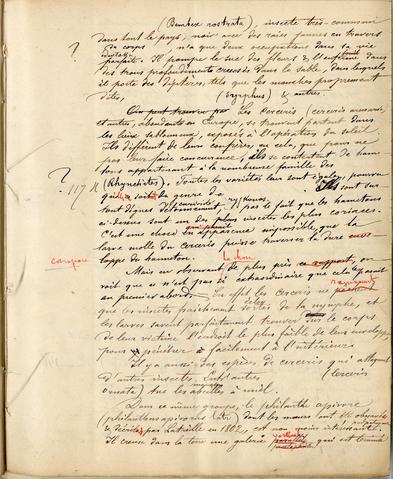 (Bembex rostrata), insecte très-commun
dans tout le pays, noir avec des raies jaunes en travers
? du corps, n'a que deux occupations dans sa vie
parfaite. Il pompe le suc des fleurs &
des trous profondément creusés dans le sable, dans lesquels
il porte des diptères, tels que les mouches proprement
dites, (syrphus) & autres.
Les Cerceris (cerceris arenaria,
et autres, abondants en Europe, se trouvent partout dans
les lieux sablonneux, exposés à l'opération du soleil
Ils diffèrent de leurs confrères, en cela, que pour ne
pas leur faire concurrence, ils se contentent de
appartenant à la nombreuse famille des
? 117 (Rhynchites). Toutes les variétés leur sont égales, pourvu
du genre
tout dignes par le fait que les hannetons
ci-dessus sont un des plus insectes les plus coriaces.
C'est une chose en apparence impossible, que la
larve molle du cerceris puisse traverser la dure
loppe du hanneton.
carapace
Mais en observant de plus près on
voit que ce n'est pas si extraordinaire que cela
au premier abord. En effet les cerceris ne
que les insectes fraîchement sortis de la nymphe, et
les larves savent parfaitement trouver sur le corps
de leur victime l'endroit le plus faible de leur enveloppe
pour pénétrer facilement à l'intérieur.
Il y a aussi des espèces de cerceris qui attaquent
d'autres insectes, (cerceris
ornata) tue les abeilles à miel.
Dans ce même groupe, le philanthe apivore
(philanthus apivorus Latr.) dont les mœurs ont été observées
& décrites par Latreille en 1802, est non moins intéressant.
Il creuse dans la terre une galerie qui est